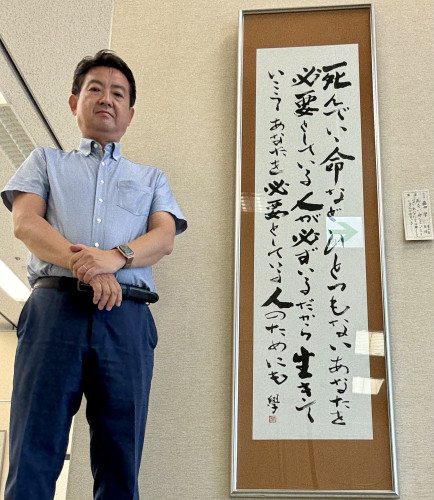 死んでいい命など ひとつもない あなたを
必要としている人が必ずいるだから 生きて
いこう あなたを 必要としている人のためにも
學